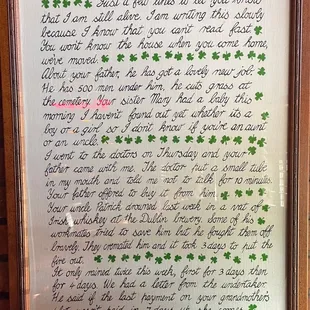 Just a few lines to let you know
that I am still alive. I am writing this slowly
because I know that you can't read fast.
You wont know the house when you come home,
we've moved.
About your father, he has got a lovely new job.
He has 500 men under him, he cuts grass at
the cemetery. Your sister Mary had a baby this
morning I havent found out yet whether its a
boy or a girl so I dont know if you're an aunt
or an uncle.
I went to the doctors on Thursday and your
father came with me. The doctor put a small tube
in my mouth and told me not to talk for 10 minutes.
Your father offered to buy it from him.
Your uncle Patrick drowned last week in a vat of
Irish whiskey at the Dublin brewery. Some of his
workmates tried to save him but he fought them off
bravely. They cremated him and it took 3 days to put the
fire out.
It only rained twice this week, first for 3 days then
for 4 days. We had a letter from the undertaker.
He said if the last payment on your grandmothers